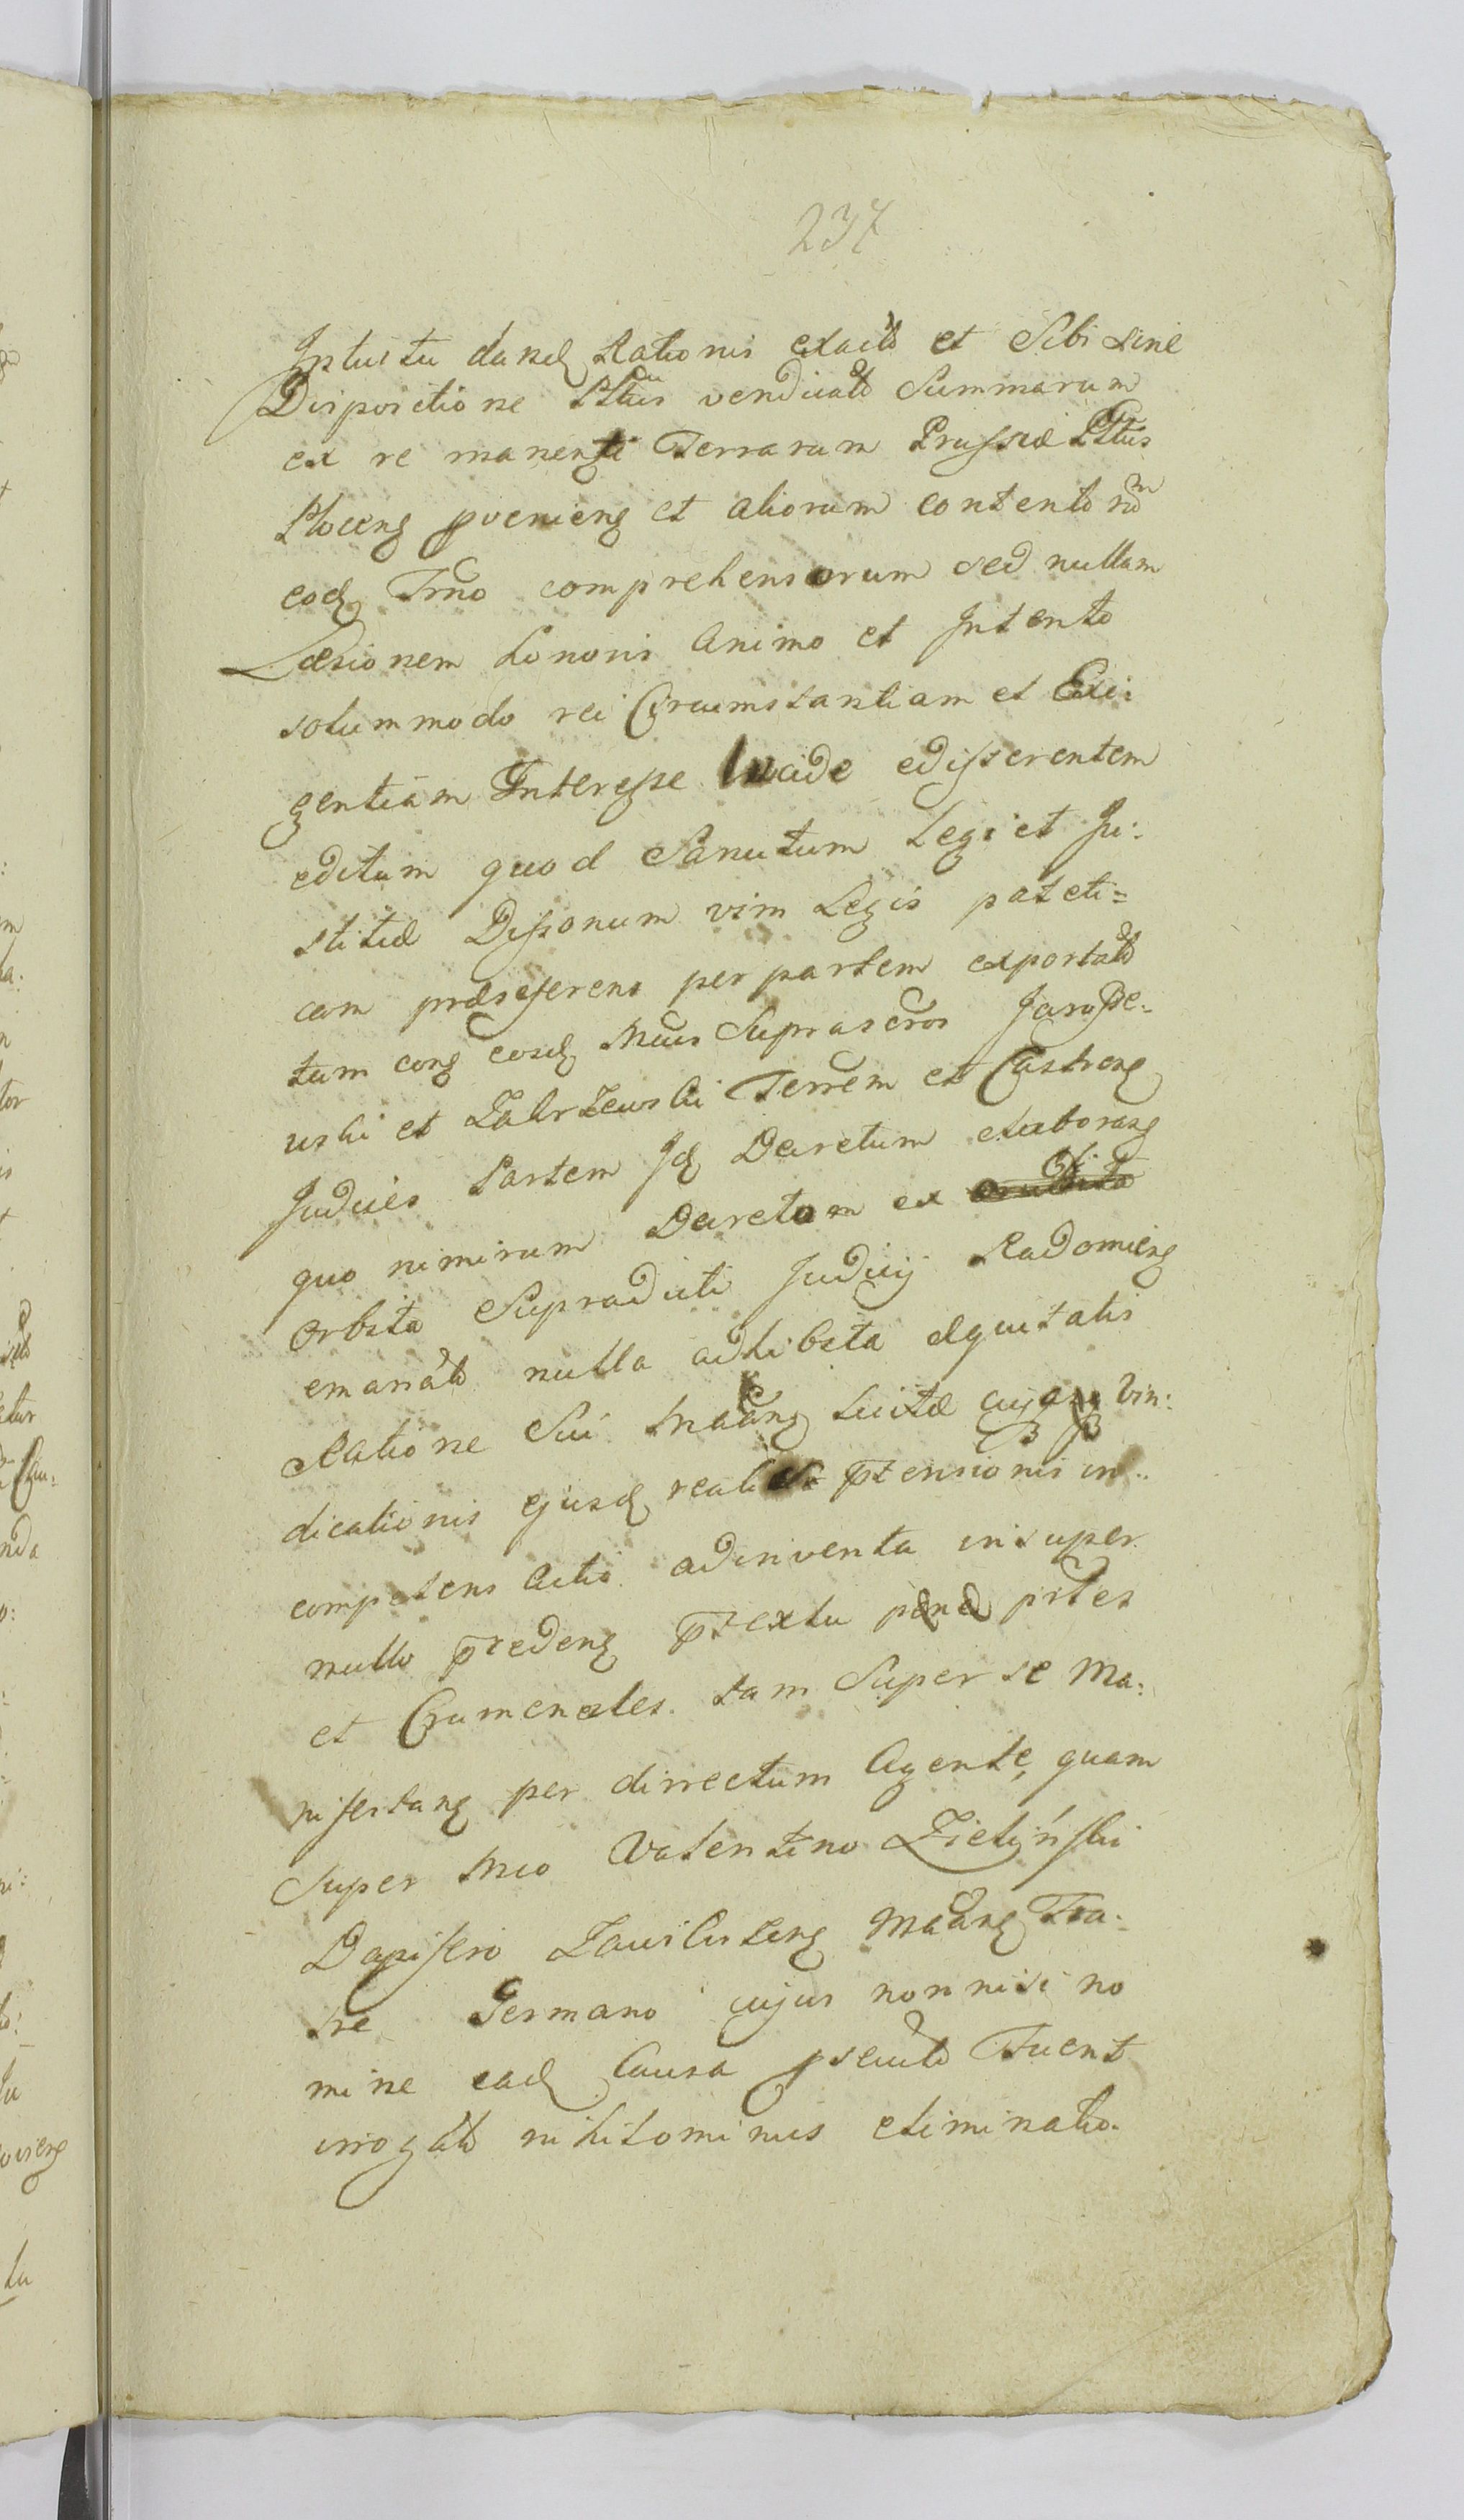 237
Intuitu dandę Rationis exacto et Sibi sine
Dispositione Pttus vendicato Summarum
ex re manenti Terrarum Prussiæ Pttus
Plocenę pvenienę et aliorum contentorum
eodę Tmno comprehensorum sed nullam
Læsionem honoris Animo et Intento
solummodo rei Circumstantiam et Exi:
gentiam Interesse lucide edisserentem
editum quod Sanutum Legi et Ju:
stitiæ Dissonum vim Legis pateti=
cam præseferens per partem exportato
tum conę eosdę Mcos Suprascros Jarosze:
wski et Zakrzewski Terrem et Castrenę
Judices Partem Jdę Decretum elaboranę
quo nimirum Decretum ex
Orbita Supradicti Judicij Radomienę
emanato nulla adhibita Æquitatis
Ratione Sui Madanę licitæ cujus Vin:
dicationis ejusdę realis ptensionis in:
competens Actio adinventa insuper
nullo præcedenę ptextu pænæ pittes
et Crumenales tam Super se Ma:
nifestanę per dirrectum Agente, quam
Super Mco Valentino Zielynski
Dapifero Zawilistenę Madanę Fra:
tre Germano cujus nonnisi no
mine eadę Causa psecuto Fuent
irrogato nihilominus eliminato.